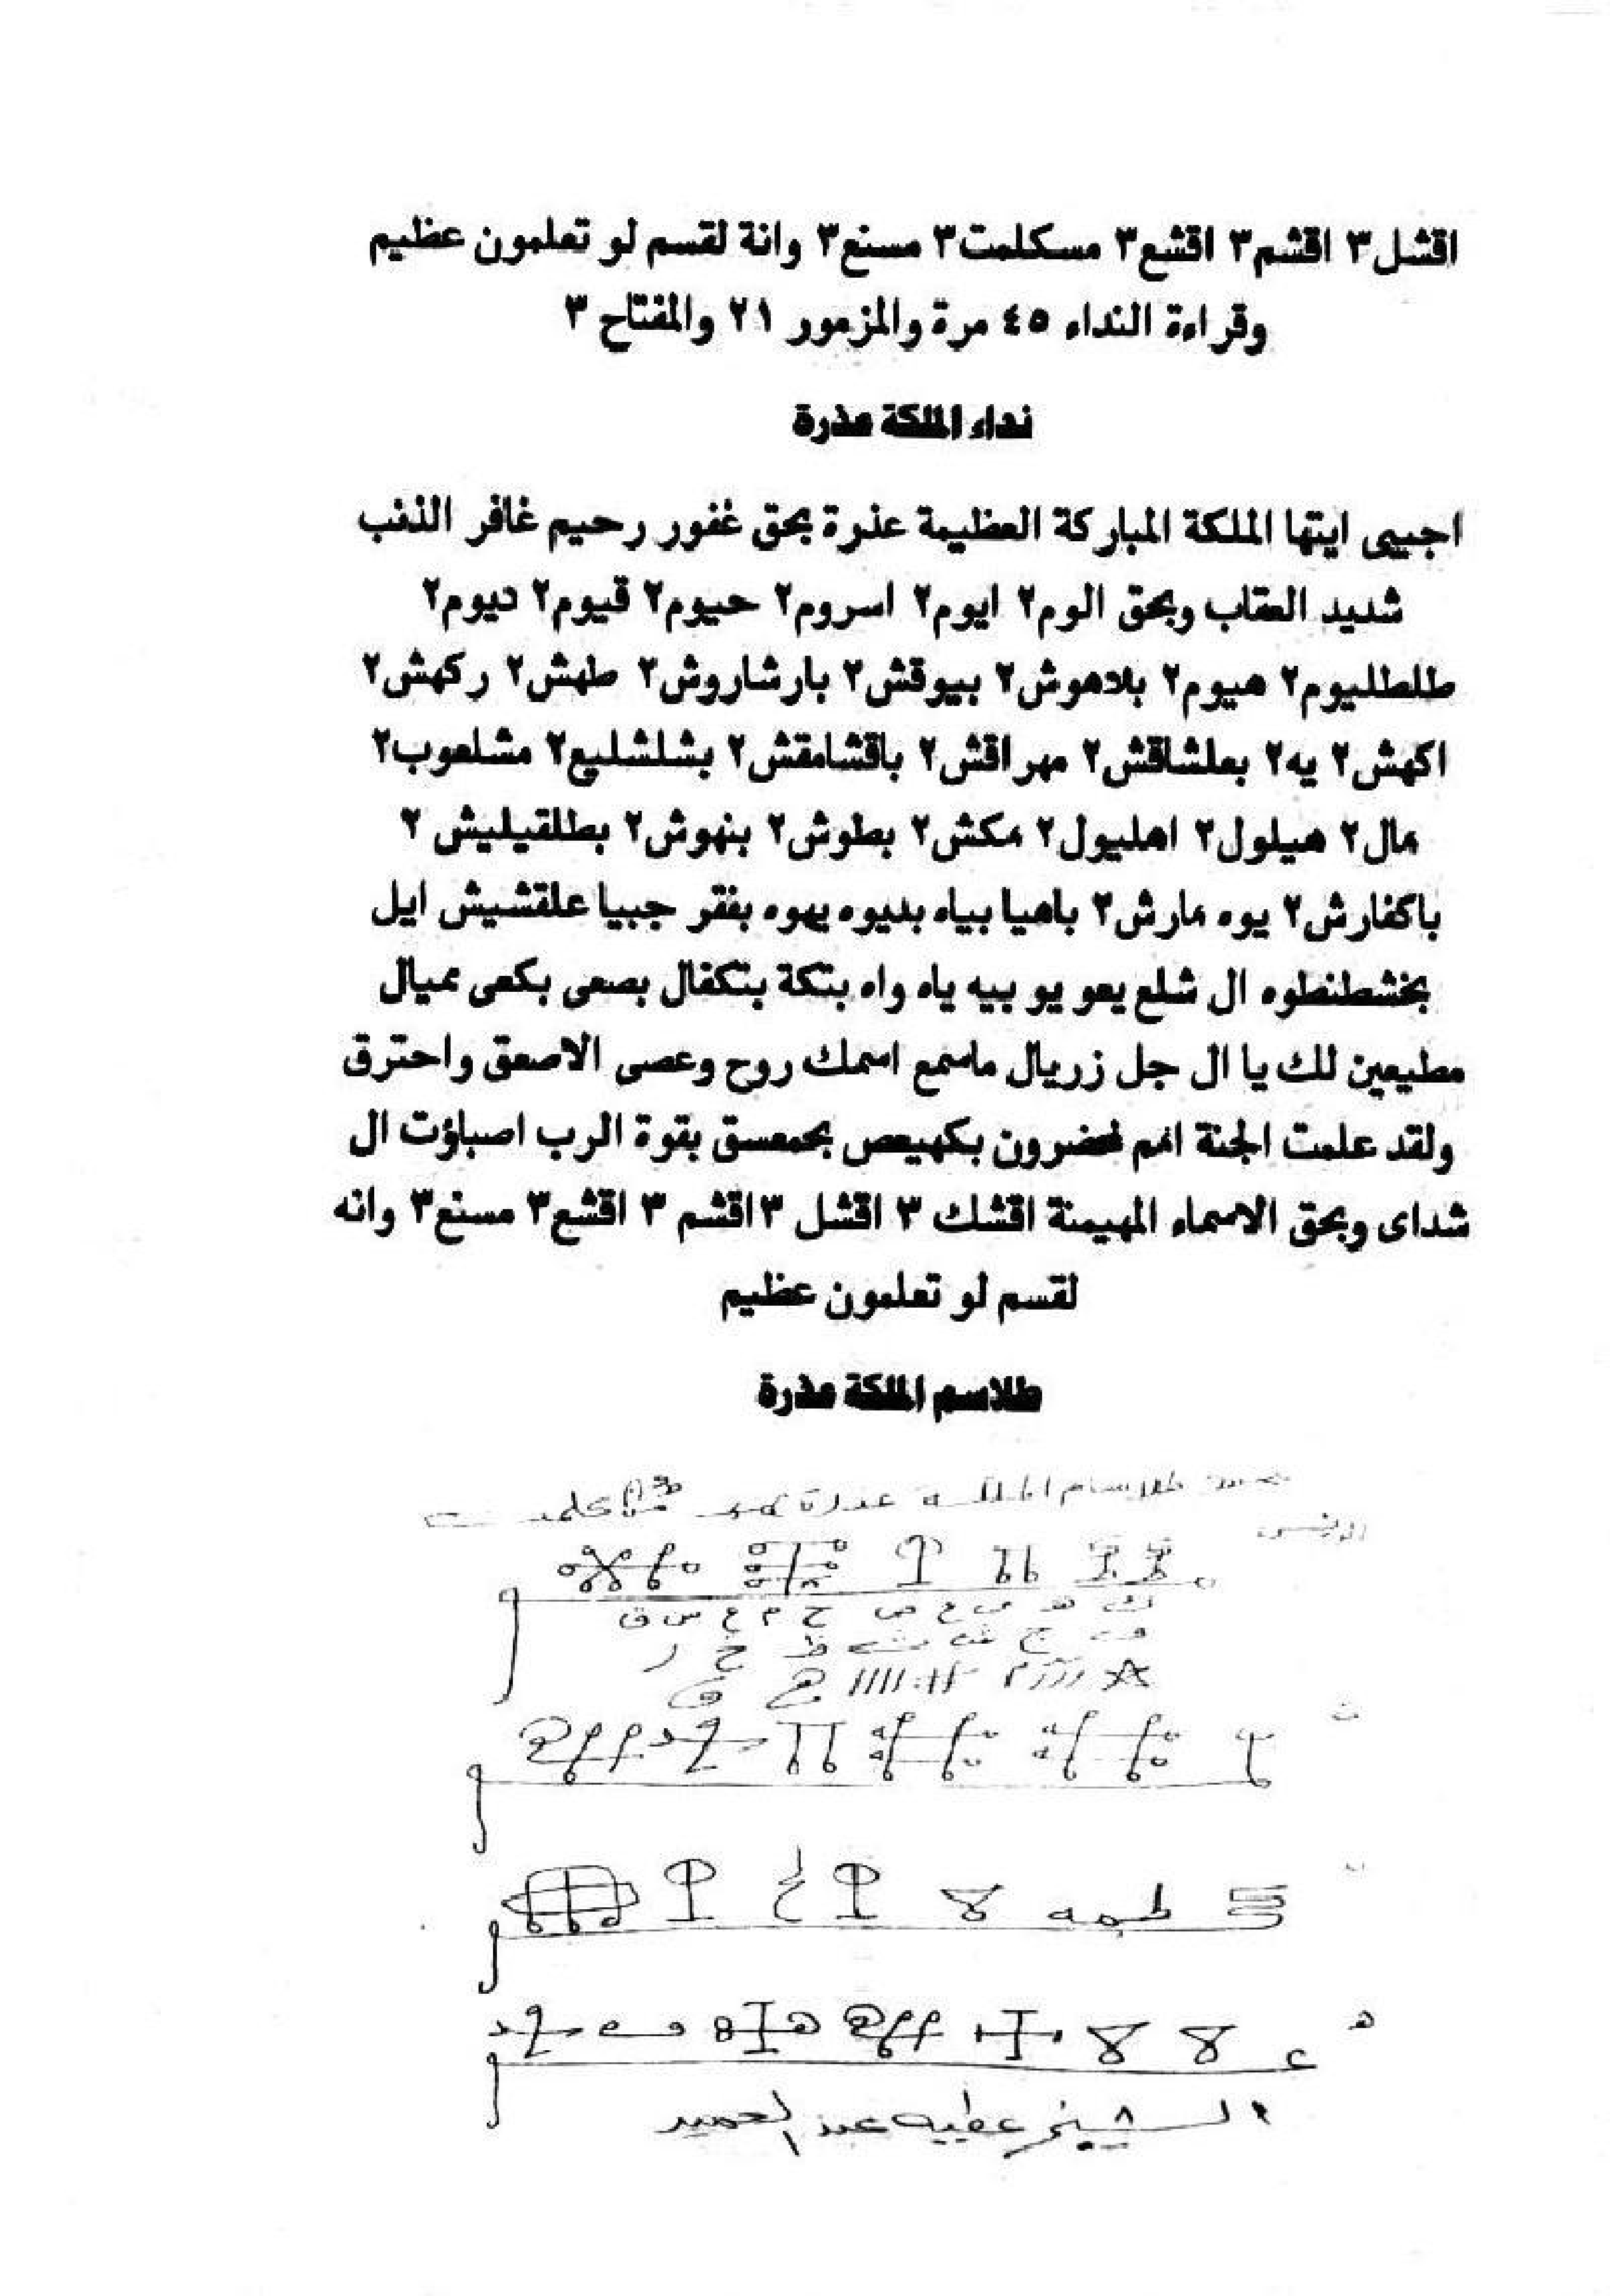 اقشل٣ اقشم٣ اقشع٣ مسكلمت٣ مسنع٣ وانة لقسم لو تعلمون عظيم
وقراءة النداء ٤٥ مرة والمزمور ٢١ والمفتاح ٣
نداء الملكة عذرة
اجيبى ايتها الملكة المباركة العظيمة عذرة بحق غفور رحيم غافر الذنب
شديد العقاب وبحق الوم٢ ايوم٢ اسروم٢ حيوم٢ قيوم٢ ديوم٢
طلطليوم٢ هيوم٢ بلاهوش٢ بيوقش٢ بارشاروش٢ طهش٢ ركهش٢
اكهش٢ يه٢ بعلشاقش٢ مهراقش٢ باقشامقش٢ بشلشليع٢ مشلعوب٢
مال٢ هيلول٢ اهليول٢ مكش٢ بطوش٢ بنهوش٢ بطلقيليش ٢
باكفارش٢ يوه مارش٢ باهيا بياه بديوه يهوه بفقر جبيا علقشيش ايل
بخشطنطوه ال شلع يعو يو بيه ياه واه بتكة بتكفال بصعى بكعى مميال
مطيعين لك يا ال جل زريال ماسمع اسمك روح وعصى الاصعق واحترق
ولقد علمت الجنة انهم لمحضرون بكهيعص بحمعسق بقوة الرب اصباؤت ال
شداى وبحق الاسماء المهيمنة اقشك ٣ اقشل ٣ اقشم ٣ اقشع٣ مسنع٣ وانه
لقسم لو تعلمون عظيم
طلاسم الملكة عذرة
ك ه ى ع ص ح م ع س ق
الشيخ عطيه عبد الحميد